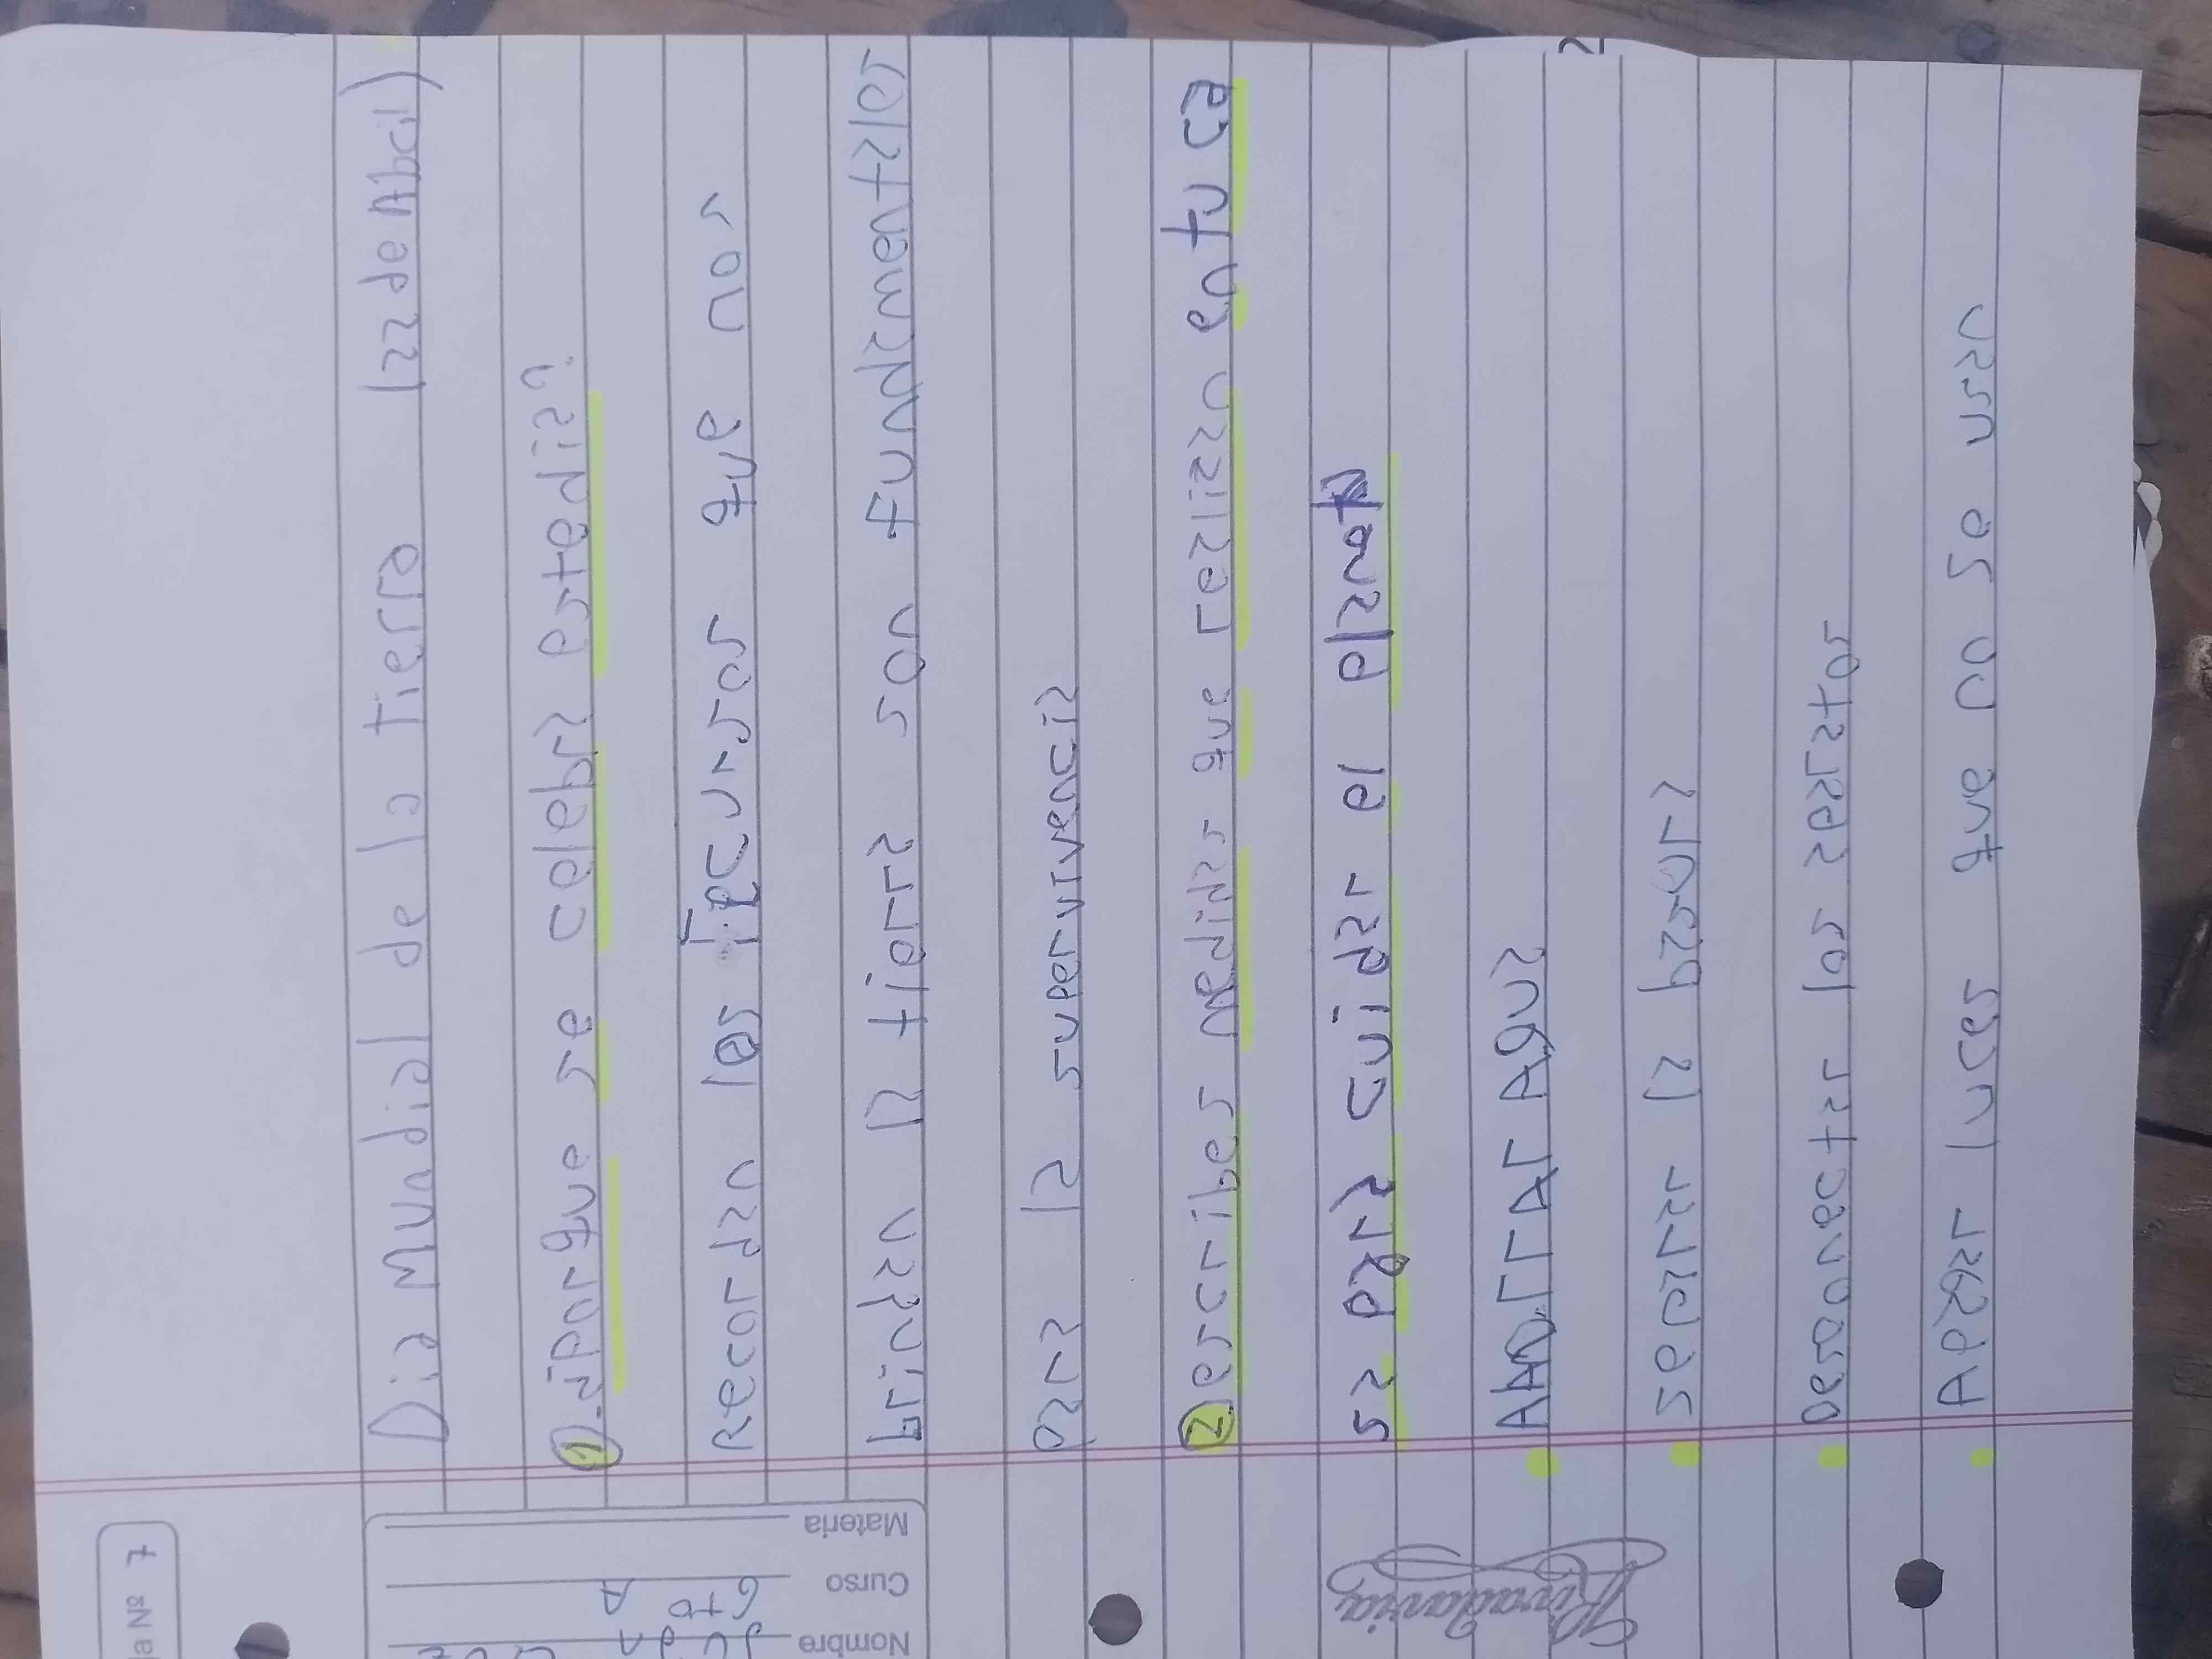 ja Nº 7
Nombre
Curso 6to A
Materia
Rivadavia
Dia Mundial de la tierra (22 de Abril)
① que se celebra este dia?
recordan los recursos que nos
brindan la tierra son fundamentales
para la supervivencia
② escribes medidas que realizan en tu ca
sa para cuidar el planeta
Ahorrar Agua
separar la basura
Desconectar los aparatos
Apagar luces que no se usan